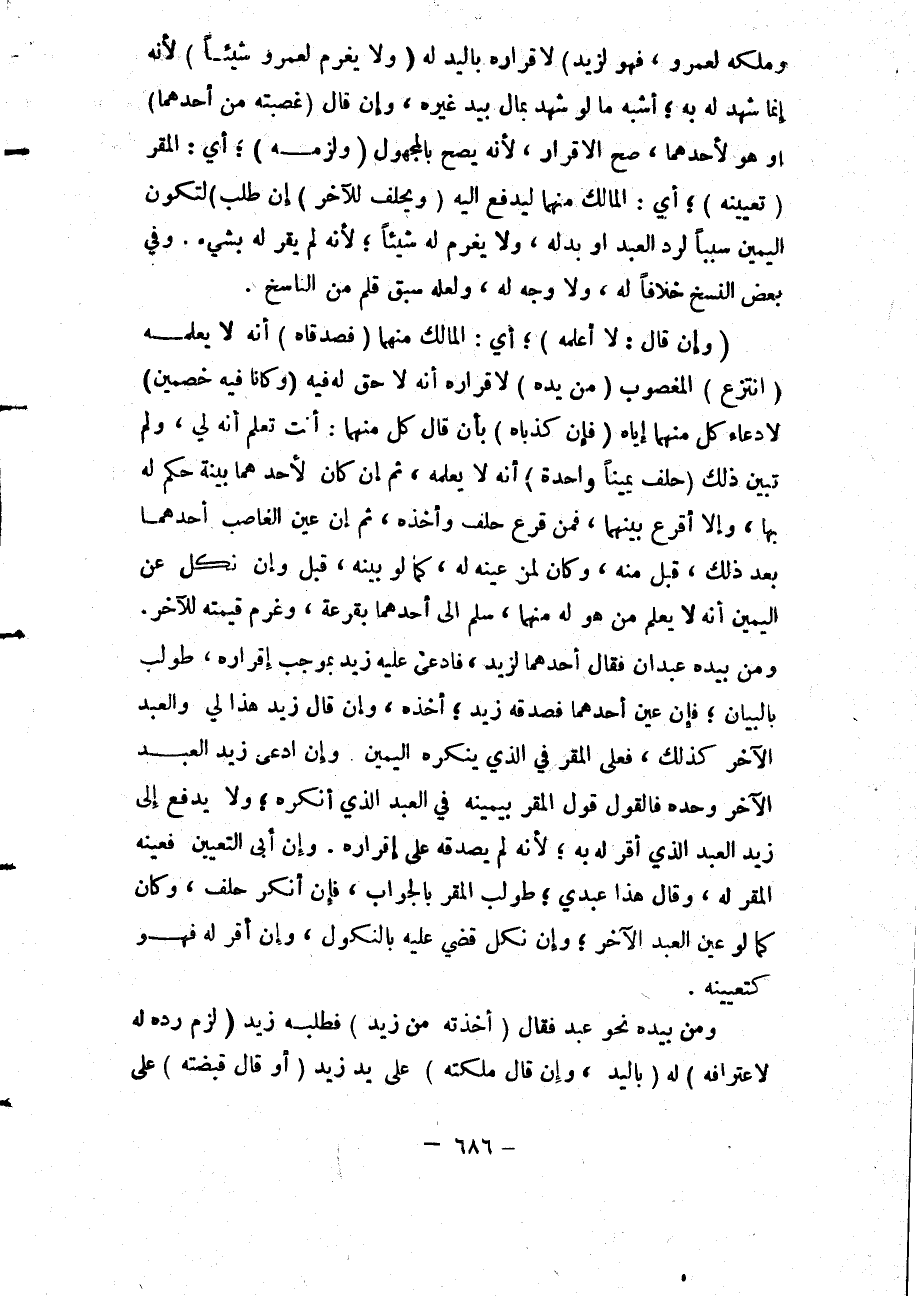 وملكه لعمرو ، فهو لزيد) لاقراره باليد له ( ولا يغرم لعمرو شيئـاً ) لأنه
إنما شهد له به ؛ أشبه ما لو شهد بمال بيد غيره ، وإن قال (غصبته من أحدهما)
او هو لأحدهما ، صح الاقرار ، لأنه يصح بالمجهول ( ولزمــه ) ؛ أي : المقر
( تعيينه ) ؛ أي : المالك منهما ليدفع اليه ( ويحلف للآخر ) إن طلب )لتكون
اليمين سبباً لرد العبد او بدله ، ولا يغرم له شيئاً ؛ لأنه لم يقر له بشيء . وفي
بعض النسخ خلافاً له ، ولا وجه له ، ولعله سبق قلم من الناسخ .
( وإن قال : لا أعلمه ) ؛ أي : المالك منهما ( فصدقاه ) أنه لا يعلمــه
( انتزع ) المغصوب ( من يده ) لاقراره أنه لا حق له فيه (وكانا فيه خصمين)
لادعاء كل منهما إياه ( فإن كذباه ) بأن قال كل منهما : أنت تعلم أنه لي ، ولم
تبين ذلك (حلف يميناً واحدة ) أنه لا يعلمه ، ثم إن كان لأحد هما بينة حكم له
بها ، وإلا أقرع بينهما ، فمن قرع حلف وأخذه ، ثم إن عين الغاصب أحدهمـا
بعد ذلك ، قبل منه ، وكان لمن عينه له ، كما لو بينه ، قبل وإن نـكل عن
اليمين أنه لا يعلم من هو له منهما ، سلم الى أحدهما بقرعة ، وغرم قيمته للآخر .
ومن بيده عبدان فقال أحدهما لزيد ، فادعى عليه زيد بموجب إقراره ، طولب
بالبيان ؛ فإن عين أحدهما فصدقه زيد ؛ أخذه ، وإن قال زيد هذا لي والعبد
الآخر كذلك ، فعلى المقر في الذي ينكره اليمين . وإن ادعى زيد العبــد
الآخر وحده فالقول قول المقر بيمينه في العبد الذي أنكره ؛ ولا يدفع إلى
زيد العبد الذي أقر له به ؛ لأنه لم يصدقه على إقراره . وإن أبى التعيين فعينه
المقر له ، وقال هذا عبدي ؛ طولب المقر بالجواب ، فإن أنكر حلف ، وكان
كما لو عين العبد الآخر ؛ وإن نكل قضي عليه بالنكول ، وإن أقر له فهــو
كتعيينه .
ومن بيده نحو عبد فقال ( أخذته من زيد ) فطلبـه زيد ( لزم رده له
لاعترافه ) له ( باليد ، وإن قال ملكته ) على يد زيد ( أو قال قبضته ) على
– ٦٨٦ –